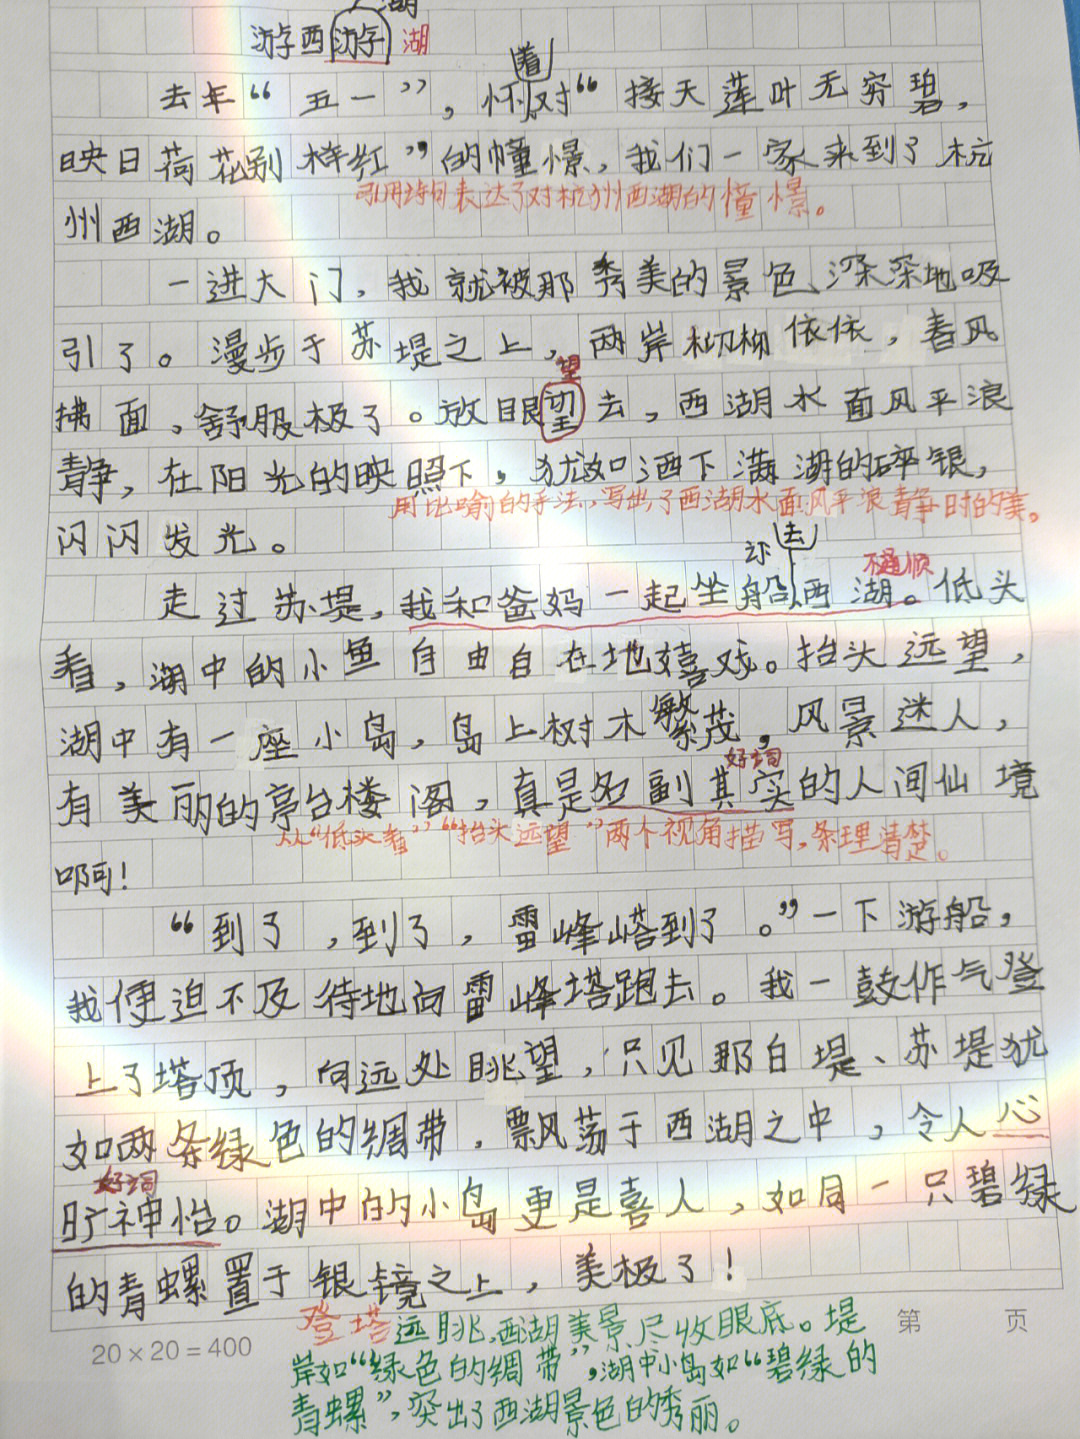 湖
游西游湖
着
去年“五一”，怀对“接天莲叶无穷碧，
映日荷花别样红”的憧憬，我们一家来到了杭
引用诗句表达了对杭州西湖的憧憬。
州西湖。
一进大门，我就被那秀美的景色深深地吸
引了。漫步于苏堤之上，两岸杨柳依依，春风
望
拂面，舒服极了。放眼望去，西湖水面风平浪
静，在阳光的映照下，犹如洒下满湖的碎银，
用比喻的手法，写出了西湖水面风平浪静时的美。
闪闪发光。
去
不通顺
走过苏堤，我和爸妈一起坐船西湖。低头
看，湖中的小鱼自由自在地嬉戏。抬头远望，
湖中有一座小岛，岛上树木繁茂，风景迷人，
好词
有美丽的亭台楼阁，真是名副其实的人间仙境
从“低头看”“抬头远望”两个视角描写，条理清楚。
啊！
“到了，到了，雷峰塔到了。”一下游船，
我便迫不及待地向雷峰塔跑去。我一鼓作气登
上了塔顶，向远处眺望，只见那白堤、苏堤犹
如两条绿色的绸带，飘荡于西湖之中，令人心
好词
旷神怡。湖中的小岛更是喜人，如同一只碧绿
的青螺置于银镜之上，美极了！
登塔远眺，西湖美景尽收眼底。堤
第 页
20×20=400
岸如“绿色的绸带”，湖中小岛如“碧绿的
青螺”，突出了西湖景色的秀丽。